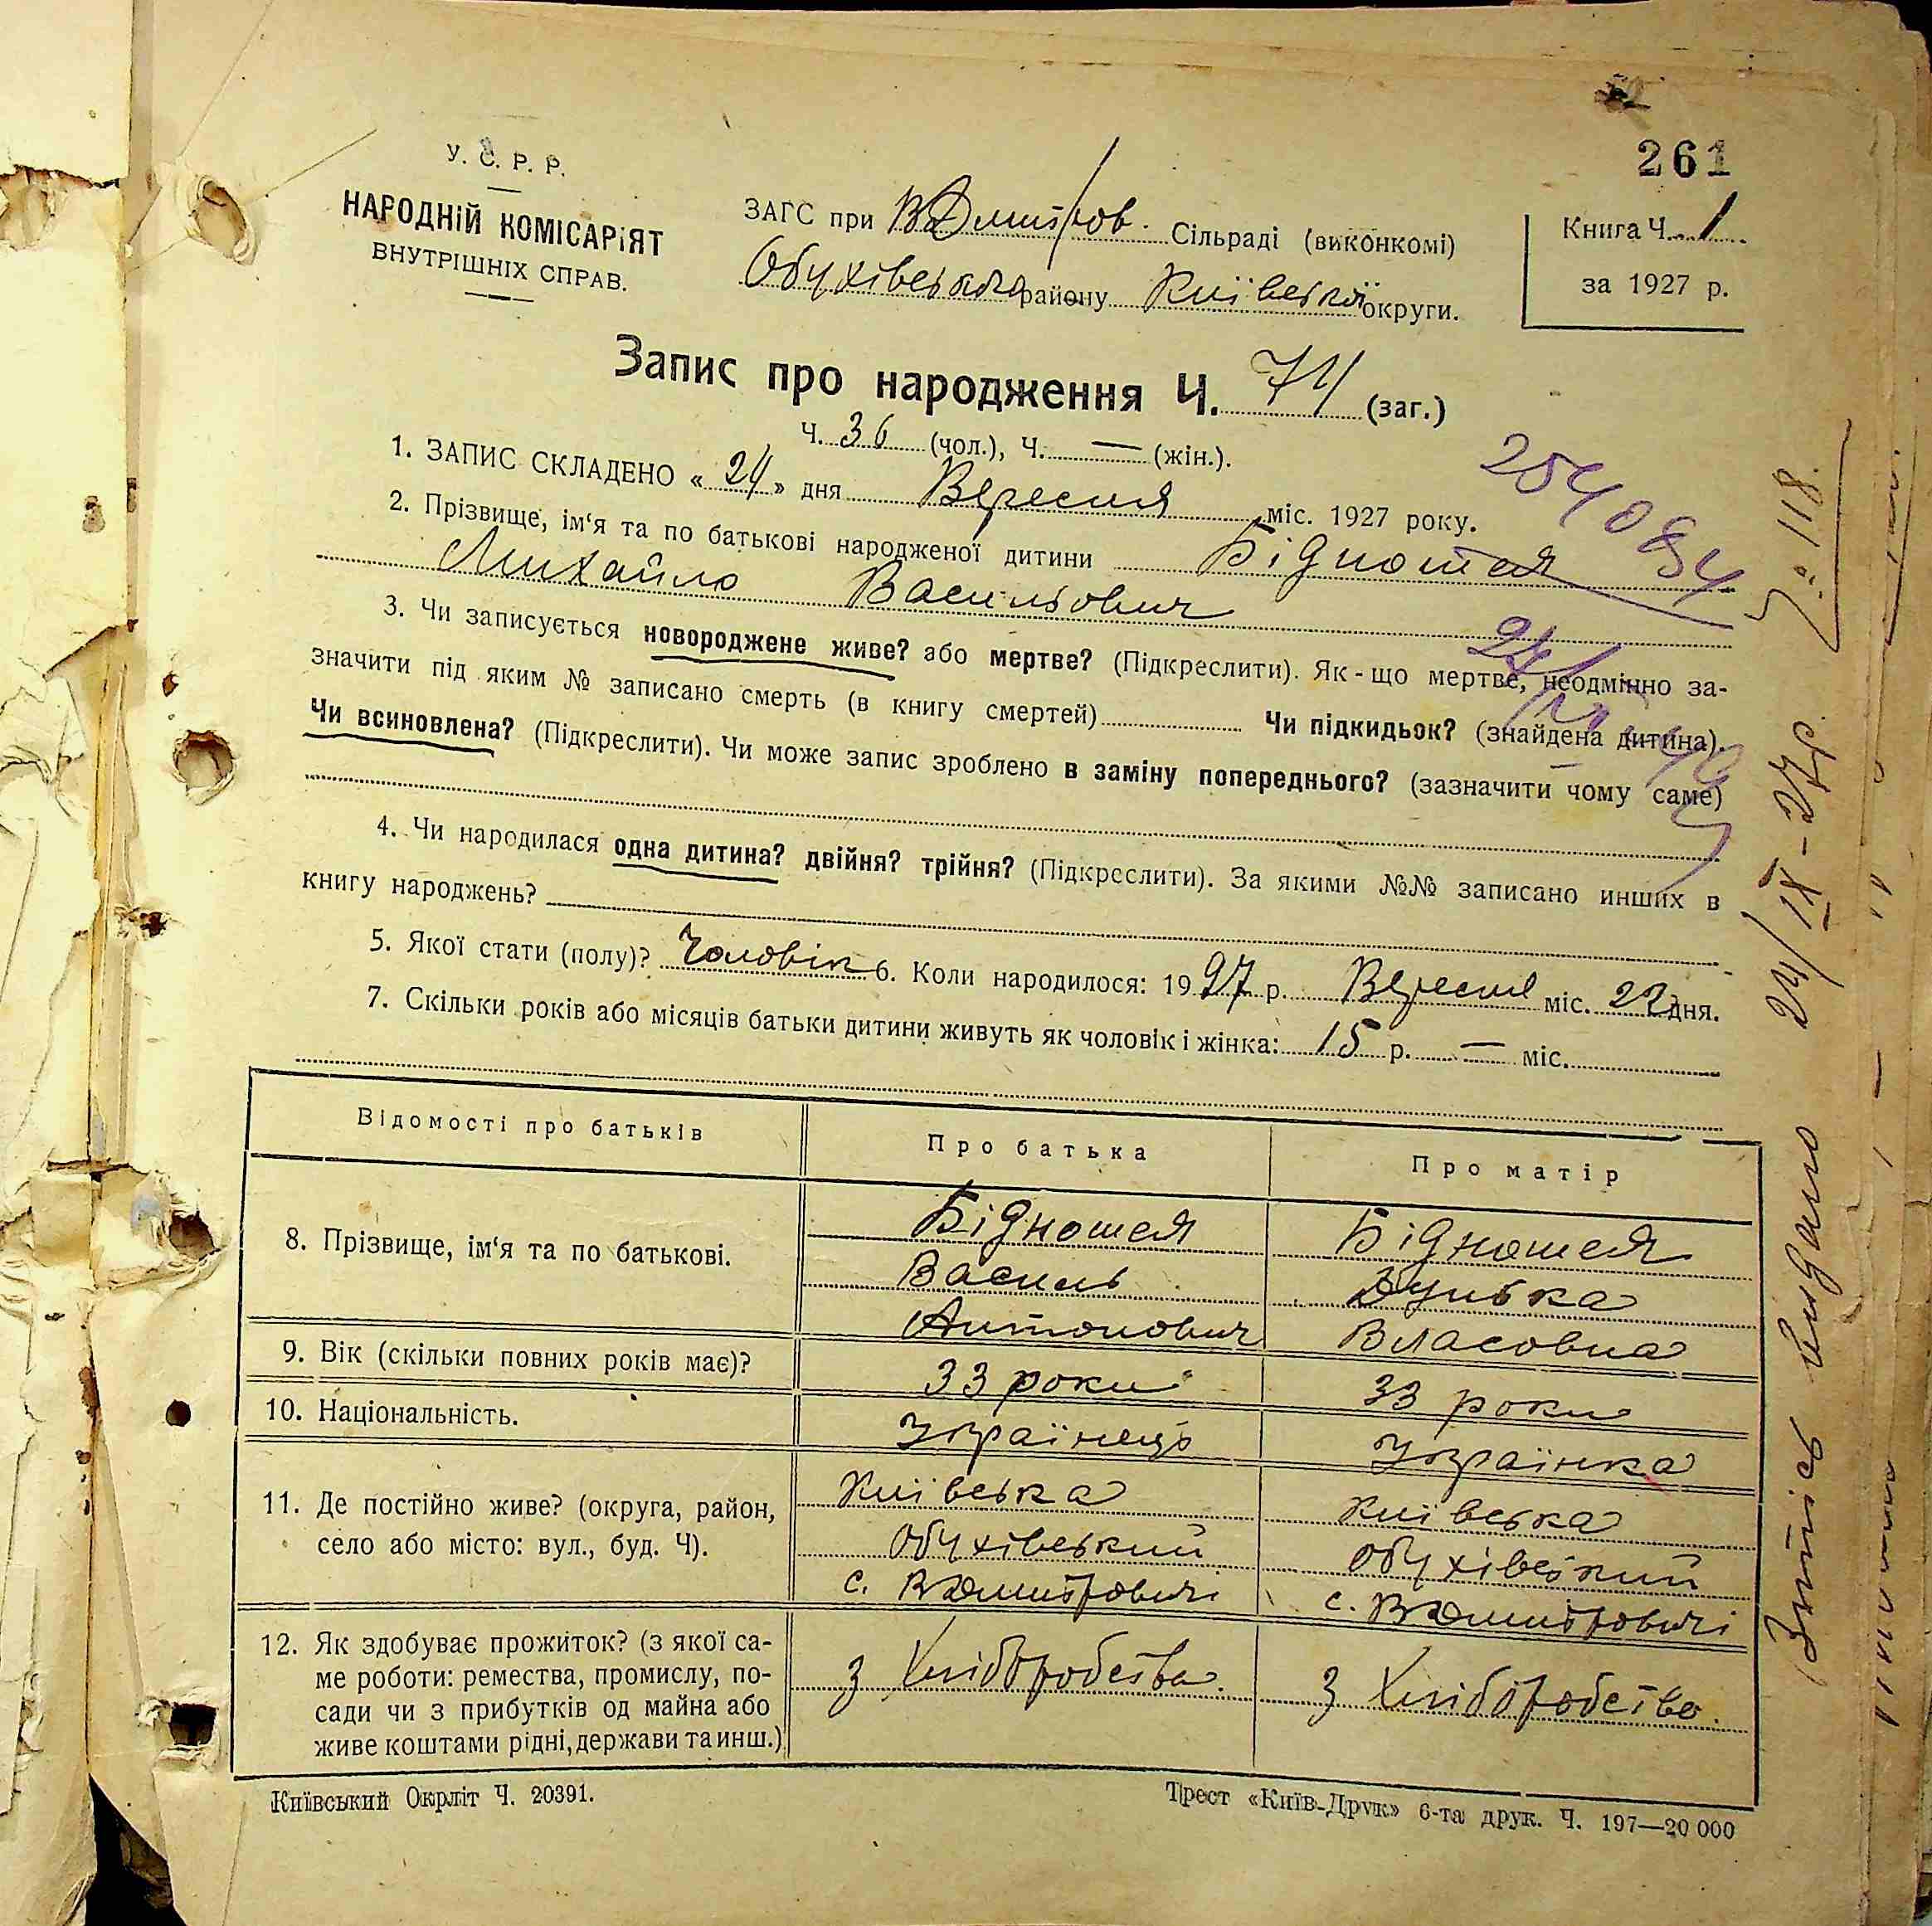 261
У. С. Р. Р.
НАРОДНІЙ КОМІСАРІЯТ
ВНУТРІШНІХ СПРАВ.
ЗАГС при ВДмитров. Сільраді (виконкомі)
Обухівського району Київської округи.
Книга Ч. 1
за 1927 р.
Запис про народження Ч. 71 (заг.)
Ч. 36 (чол.), Ч. — (жін.).
1. ЗАПИС СКЛАДЕНО « 24 » дня Вересня міс. 1927 року.
2. Прізвище, ім‘я та по батькові народженої дитини Бідношея
Михайло Васильович
3. Чи записується новороджене живе? або мертве? (Підкреслити). Як-що мертве, неодмінно за-
значити під яким № записано смерть (в книгу смертей) Чи підкидьок? (знайдена дитина).
Чи всиновлена? (Підкреслити). Чи може запис зроблено в заміну попереднього? (зазначити чому саме)
4. Чи народилася одна дитина? двійня? трійня? (Підкреслити). За якими №№ записано инших в
книгу народжень?
5. Якої стати (полу)? Чоловік 6. Коли народилося: 1927 р. Вересня міс. 22 дня.
7. Скільки років або місяців батьки дитини живуть як чоловік і жінка: 15 р. — міс.
Відомості про батьків
Про батька
Про матір
8. Прізвище, ім‘я та по батькові.
Бідношея
Василь
Антонович
Бідношея
Дунька
Власовна
9. Вік (скільки повних років має)?
33 роки
33 роки
10. Національність.
Українець
Українка
11. Де постійно живе? (округа, район,
село або місто: вул., буд. Ч).
Київська
Обухівський
с. ВДмитровичі
Київська
Обухівський
с. ВДмитровичі
12. Як здобуває прожиток? (з якої са-
ме роботи: ремества, промислу, по-
сади чи з прибутків од майна або
живе коштами рідні, держави та инш.)
з Хліборобства.
з Хліборобства.
Київський Окрліт Ч. 20391.
Трест «Київ-Друк» 6-та друк. Ч. 197—20 000
254084
Витісь видано 24/IX-27р. № 118.